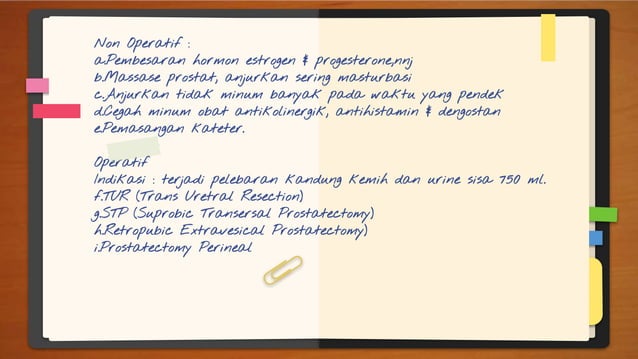 Non Operatif :
a.Pembesaran hormon estrogen & progesterone,nnj
b.Massase prostat, anjurkan sering masturbasi
c.Anjurkan tidak minum banyak pada waktu yang pendek
d.Cegah minum obat antikolinergik, antihistamin & dengostan
e.Pemasangan kateter.
Operatif
Indikasi : terjadi pelebaran kandung kemih dan urine sisa 750 ml.
f.TUR (Trans Uretral Resection)
g.STP (Suprobic Transersal Prostatectomy)
h.Retropubic Extravesical Prostatectomy)
i.Prostatectomy Perineal